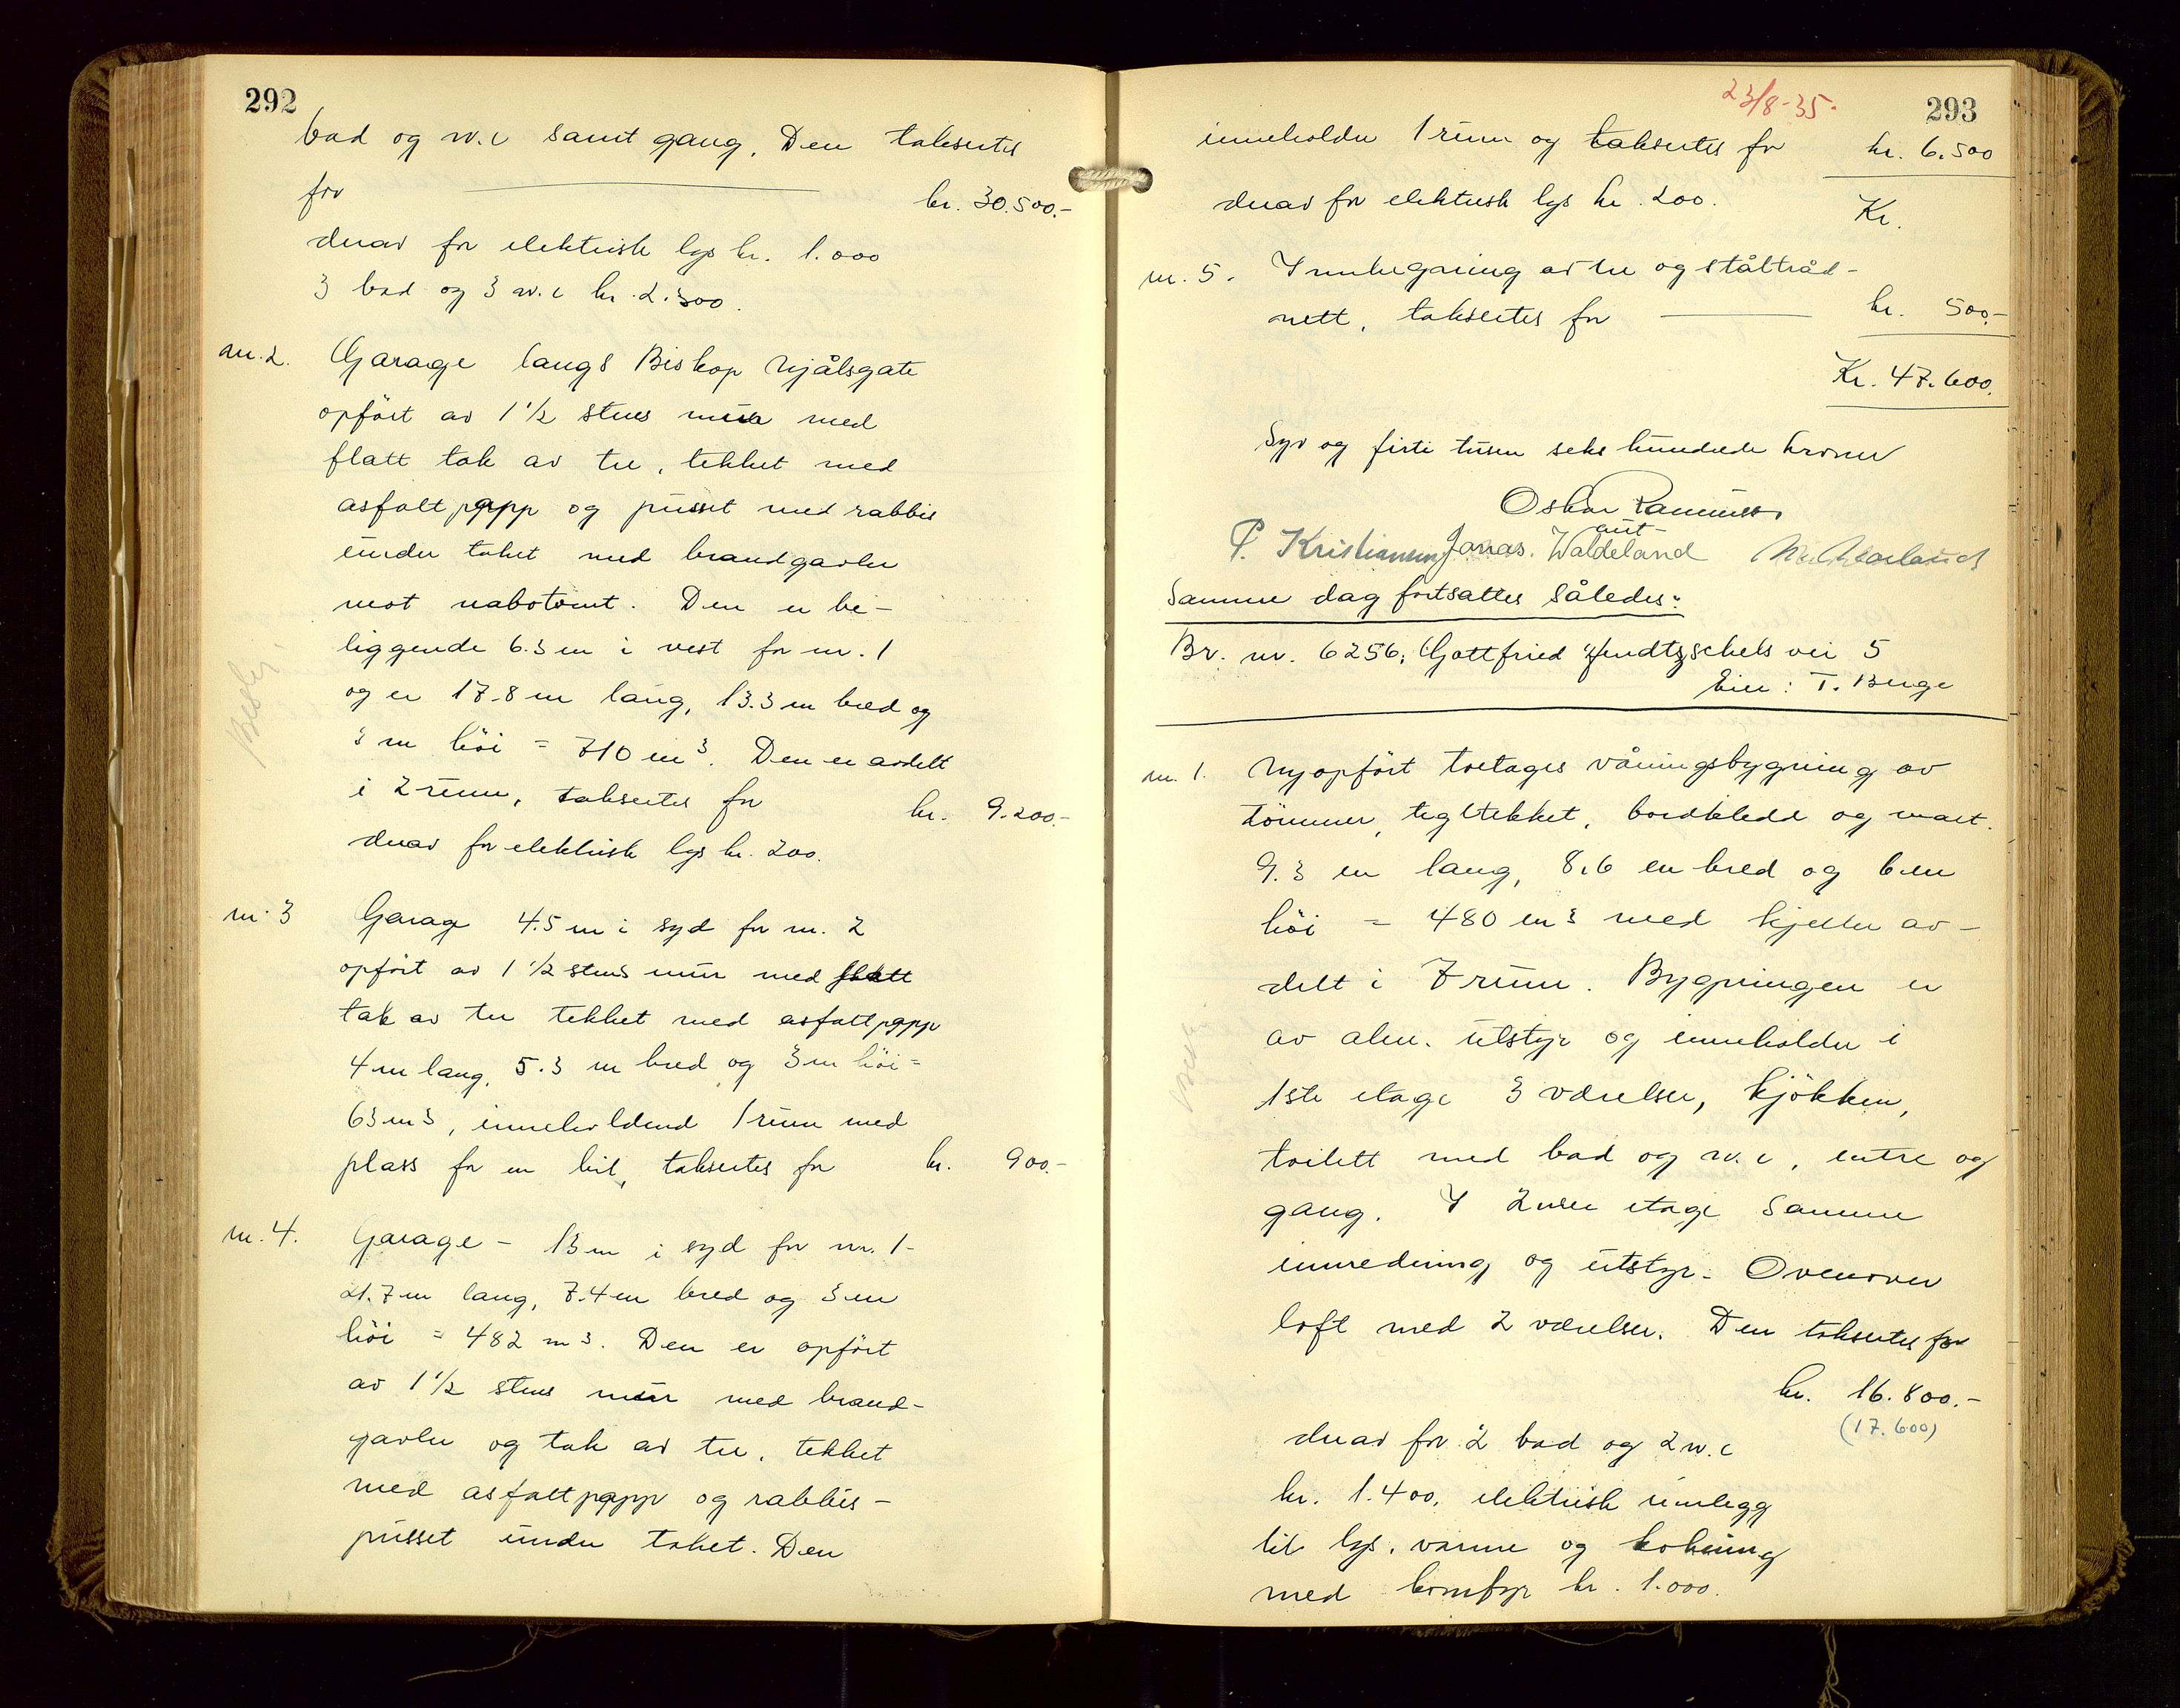 292
bad og w.c samt gang. Den takseres
for kr. 30.500.-
derav for elektrisk lys kr. 1.000
3 bad og 3 w.c kr. 2.300.
nr. 2. Garage langs Biskop Njålsgate
opført av 1 1/2 stens mur med
flatt tak av tre, tekket med
asfaltpapp og pusset med rabbis
under taket med brandgavler
mot nabotomt. Den er be-
liggende 6.3 m i vest for nr. 1
og er 17.8 m lang, 13.3 m bred og
3 m höi = 710 m³. Den er avdelt
i 2 rum, takseres for kr. 9.200.-
derav for elektrisk lys kr. 200.
nr. 3 Garage 4.5 m i syd for nr. 2
opført av 1 1/2 stens mur med flatt
tak av tre tekket med asfaltpapp
4 m lang, 5.3 m bred og 3 m höi =
63 m³, inneholdend 1 rum med
plass for en bil, takseres for kr. 900.-
nr. 4. Garage - 13 m i syd for nr. 1 -
21.7 m lang, 7.4 m bred og 3 m
höi = 482 m³. Den er opført
av 1 1/2 stens mur med brand-
gavler og tak av tre, tekket
med asfaltpapp og rabbis-
pusset under taket. Den
23/8-35.
293
inneholder 1 rum og takseres for kr. 6.500
derav for elektrisk lys kr. 200. Kr.
nr. 5. Innhegning av tre og ståltråd-
nett, takseres for kr. 500.-
Kr. 47.600.
Syv og firti tusen seks hundrede kroner
Oskar Rasmussen
P. Kristiansen Jonas. Waldeland
Samme dag fortsattes således:
Br. nr. 6256, Gottfried Jendtzschels vei 5
Eier: T. Berge
nr. 1. Nyopført toetages våningsbygning av
tömmer, tegltekket, bordkledd og malt.
9.3 m lang, 8.6 m bred og 6 m
höi = 480 m³ med kjeller av-
delt i 7 rum. Bygningen er
av alm. utstyr og inneholder i
1ste etage 3 værelser, kjökken,
toilett med bad og w.c, entre og
gang. I 2nen etage samme
innredning og utstyr. Ovenover
loft med 2 værelser. Den takseres for
kr. 16.800.-
(17.600)
derav for 2 bad og 2 w.c
kr. 1.400, elektrisk innlegg
til lys, varme og kokning
med komfyr kr. 1.000.